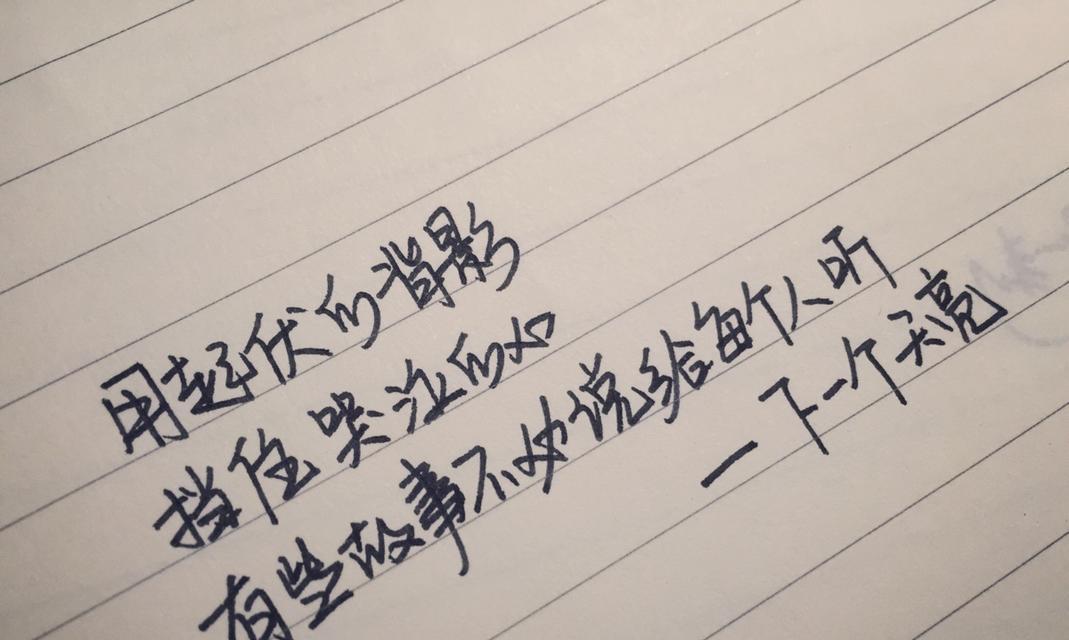 用起伏的背影
挡住哭泣的心
有些故事不必说给每个人听
—下一个天亮